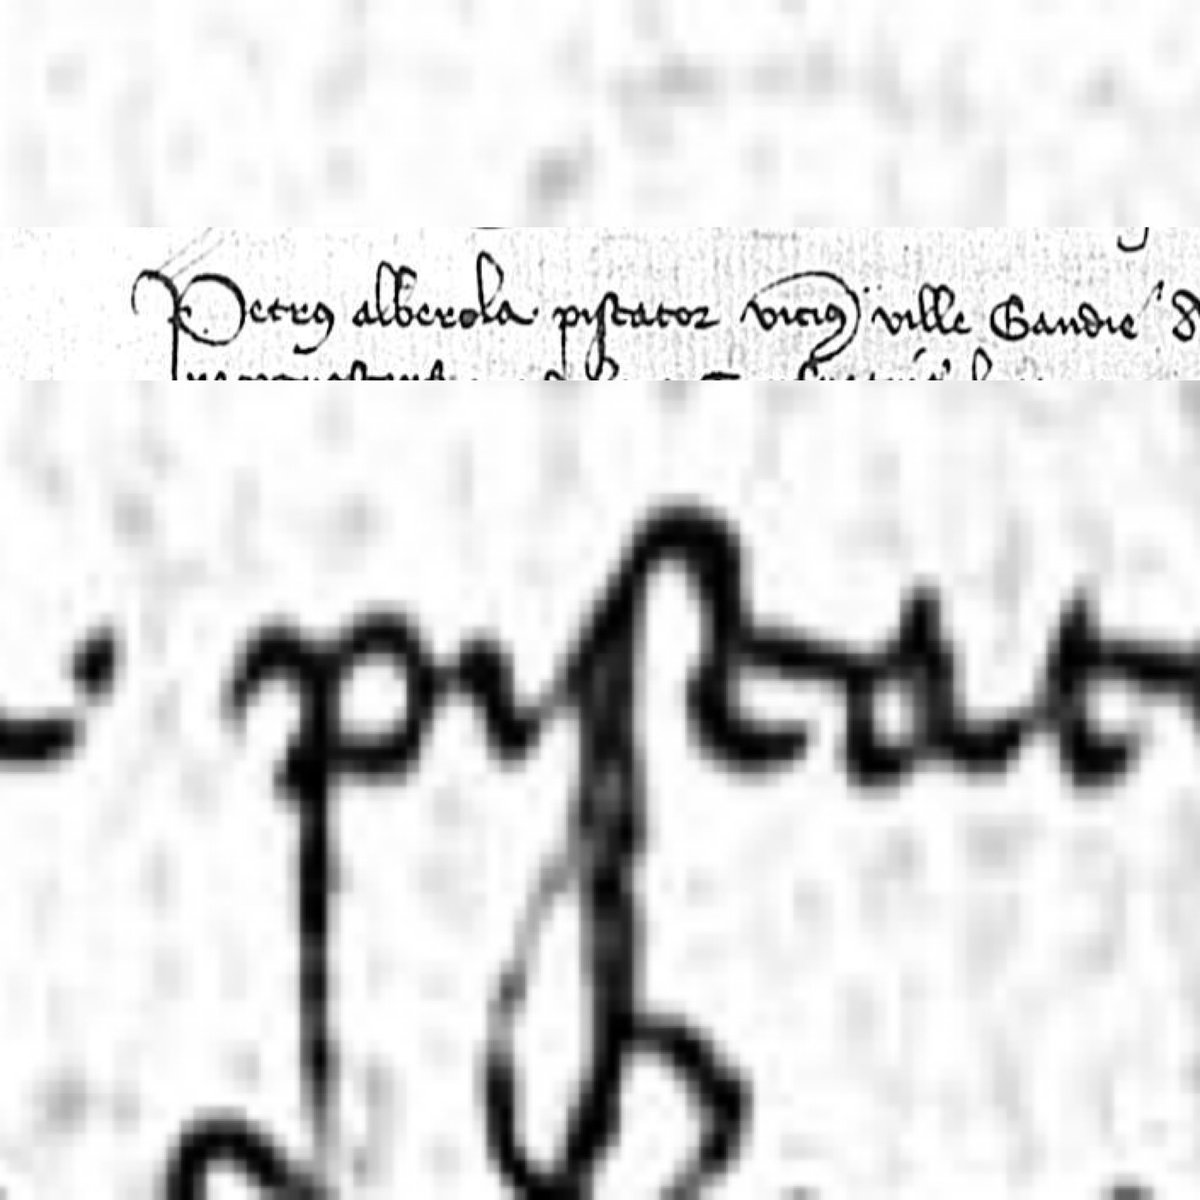 Petrus alberola pistator vicinus ville Gandie
pistat